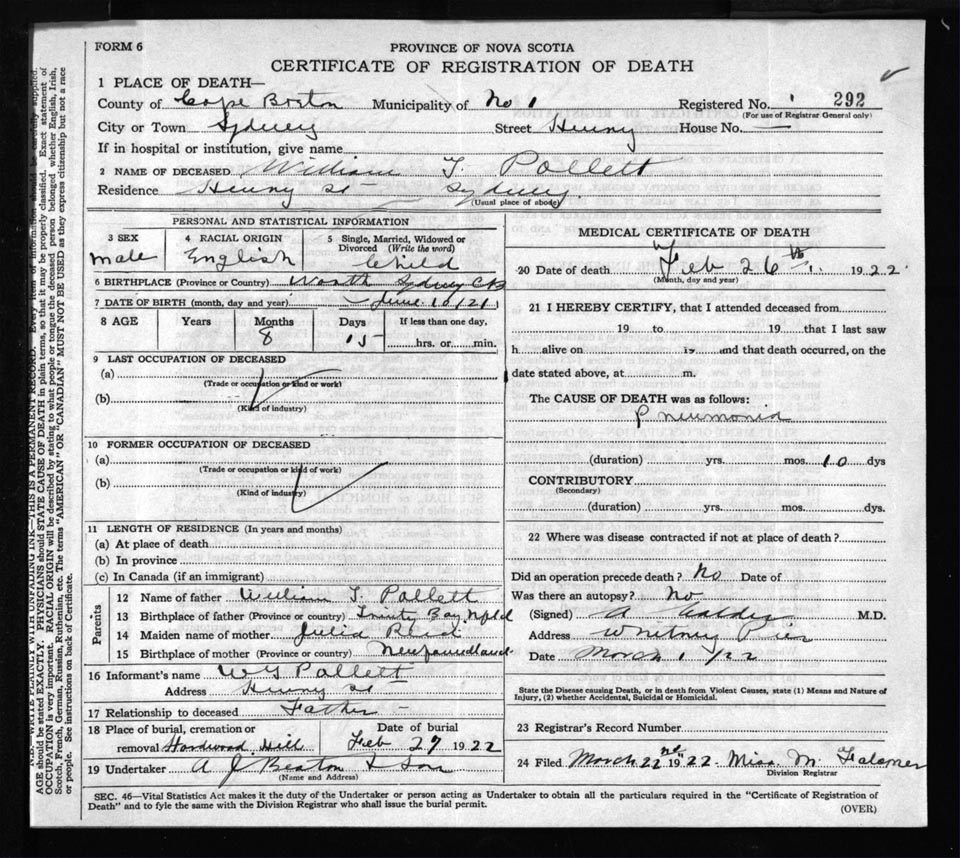 FORM 6
PROVINCE OF NOVA SCOTIA
CERTIFICATE OF REGISTRATION OF DEATH
1 PLACE OF DEATH—
County of Cape Breton Municipality of No 1 Registered No. 292
(For use of Registrar General only)
City or Town Sydney Street Henry House No. —
If in hospital or institution, give name
2 NAME OF DECEASED William T. Pollett
Residence Henry St — Sydney
(Usual place of abode)
PERSONAL AND STATISTICAL INFORMATION
3 SEX
male
4 RACIAL ORIGIN
English
5 Single, Married, Widowed or Divorced (Write the word)
Child
6 BIRTHPLACE (Province or Country) North Sydney CB
7 DATE OF BIRTH (month, day and year) June 10/21
8 AGE Years Months Days If less than one day,
8 15 hrs. or min.
9 LAST OCCUPATION OF DECEASED
(a)
(Trade or occupation or kind or work)
(b)
(Kind of industry)
10 FORMER OCCUPATION OF DECEASED
(a)
(Trade or occupation or kind of work)
(b)
(Kind of industry)
11 LENGTH OF RESIDENCE (In years and months)
(a) At place of death
(b) In province
(c) In Canada (if an immigrant)
Parents
12 Name of father William T. Pollett
13 Birthplace of father (Province or country) Trinity Bay Nfld
14 Maiden name of mother Julia Reid
15 Birthplace of mother (Province or country) Newfoundland
16 Informant's name W T Pollett
Address Henry St
17 Relationship to deceased Father —
18 Place of burial, cremation or removal Hardwood Hill
Date of burial
Feb 27 1922
19 Undertaker A J Beaton & Son
(Name and Address)
MEDICAL CERTIFICATE OF DEATH
20 Date of death Feb 26th 1922
(Month, day and year)
21 I HEREBY CERTIFY, that I attended deceased from
19 to 19 that I last saw
h alive on 19 and that death occurred, on the
date stated above, at m.
The CAUSE OF DEATH was as follows:
Pneumonia
(duration) yrs. mos. 10 dys
CONTRIBUTORY
(Secondary)
(duration) yrs. mos. dys.
22 Where was disease contracted if not at place of death?
Did an operation precede death? No Date of
Was there an autopsy? No
(Signed) A Calder M.D.
Address Whitney Pier
Date March 1/22
State the Disease causing Death, or in death from Violent Causes, state (1) Means and Nature of Injury, (2) whether Accidental, Suicidal or Homicidal.
23 Registrar's Record Number
24 Filed March 22nd 1922 Miss M
Division Registrar
SEC. 46—Vital Statistics Act makes it the duty of the Undertaker or person acting as Undertaker to obtain all the particulars required in the "Certificate of Registration of
Death" and to fyle the same with the Division Registrar who shall issue the burial permit.
(OVER)
N.B.—WRITE PLAINLY WITH UNFADING INK—THIS IS A PERMANENT RECORD. Every item of information should be carefully supplied.
AGE should be stated EXACTLY. PHYSICIANS should STATE CAUSE OF DEATH in plain terms, so that it may be properly classified. Exact statement of
OCCUPATION is very important. RACIAL ORIGIN will be described by stating to what people or tongue the deceased person belonged whether English, Irish,
Scotch, French, German, Russian, Ruthenian, etc. The terms "AMERICAN" OR "CANADIAN" MUST NOT BE USED as they express citizenship but not a race
or people. See instructions on back of Certificate.